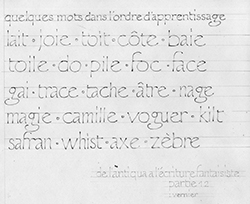 quelques mots dans l'ordre d'apprentissage
lait • joie • toit • côte • baie
toile • do • pile • foc • face
gai • trace • tache • âtre • nage
magie • camille • voguer • kilt
safran • whist • axe • zèbre
de l'antiqua a l'écriture fantaisiste
partie 1.2.
j.vernier